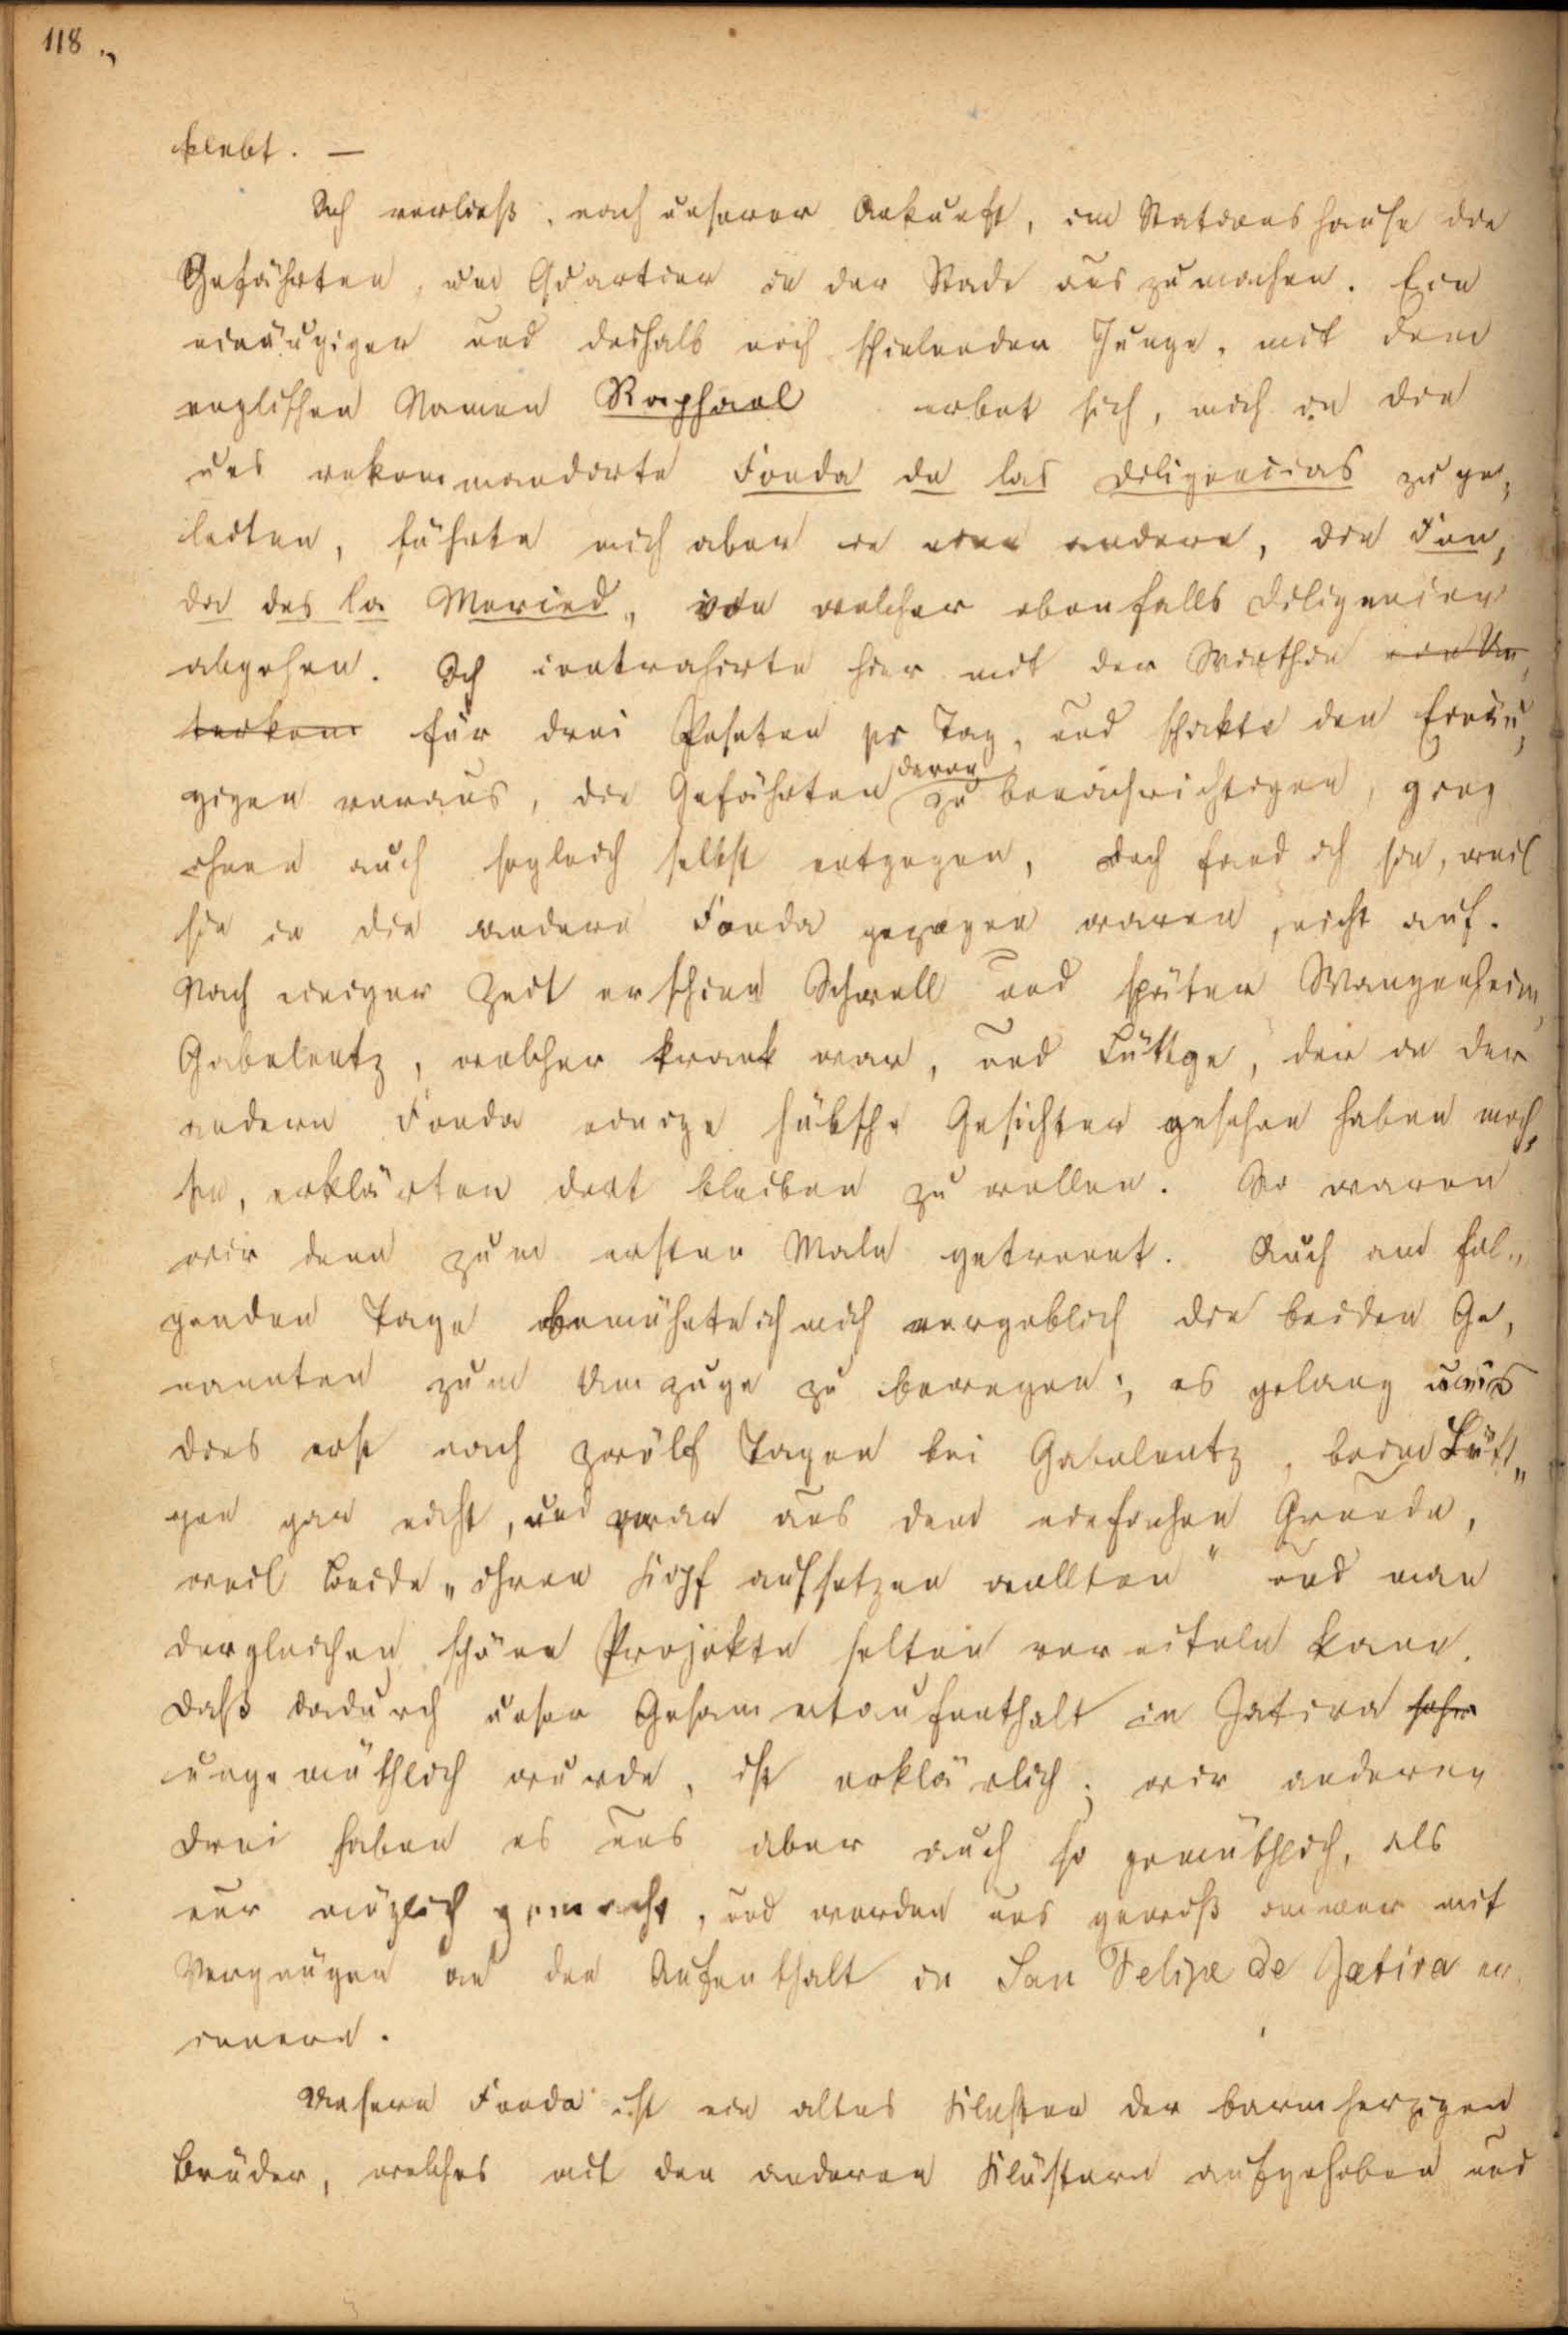 118.
klebt. —
Ich verließ, nach unserer Ankunft, im Stationshause die
Gefährten, um Quartier in der Stadt auszumachen. Ein
einäugiger und deshalb noch schielender Junge, mit dem
englischen Namen Raphael erbot sich, mich in die
uns rekommandirte Fonda de las diligencias zu ge,
leiten, führte mich aber in eine andere, die Fon,
da des la Mericed, von welcher ebenfalls Diligencien
abgehen. Ich contrahirte hier mit der Wirthin ein Un,
terkom für drei Peseten pr Tag, und schickte den Einäu,
gigen voraus, die Gefährten davon zu benachrichtigen, ging
ihnen auch sogleich selbst entgegen, doch fand ich sie, weil
sie in die andere Fonda gezogen waren, nicht auf.
Nach einiger Zeit erschien Schwell und später Wangenheim,
Gabelentz, welcher krank war, und Lüttge, die in der
andern Fonda einige hübsche Gesichter gesehen haben moch,
ten, erklärten dort bleiben zu wollen. So waren
wir denn zum ersten Male getrennt. Auch am fol„
genden Tage bemühete ich mich vergeblich die beiden Ge,
nannten zum Umzuge zu bewegen; es gelang uns
dies erst nach zwölf Tagen bei Gabelentz, beim Lütt„
gen gar nicht, und zwar aus dem einfachen Grunde,
weil Beide „ihren Kopf aufsetzen wollten" und man
dergleichen schöne Projekte selten vereiteln kann.
Daß dadurch unser Gesammtaufenthalt in Jativa sehr
ungemüthlich wurde, ist erklärlich; wir anderen
drei haben es uns aber auch so gemüthlich, als
nur möglich gemacht, und werden uns gewiß immer mit
Vergnügen an den Aufenthalt in San Felipe de Jativa er,
innern.
Unsere Fonda ist ein altes Kloster der barmherzigen
Brüder, welches mit den anderen Klöstern aufgehoben und